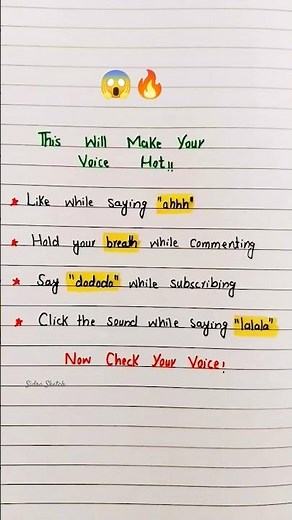 This Will Make Your
Voice Hot!!
Like while saying "ahhh"
Hold your breath while commenting
Say "dadada" while subscribing
Click the sound while saying "lalala"
Now Check Your Voice!